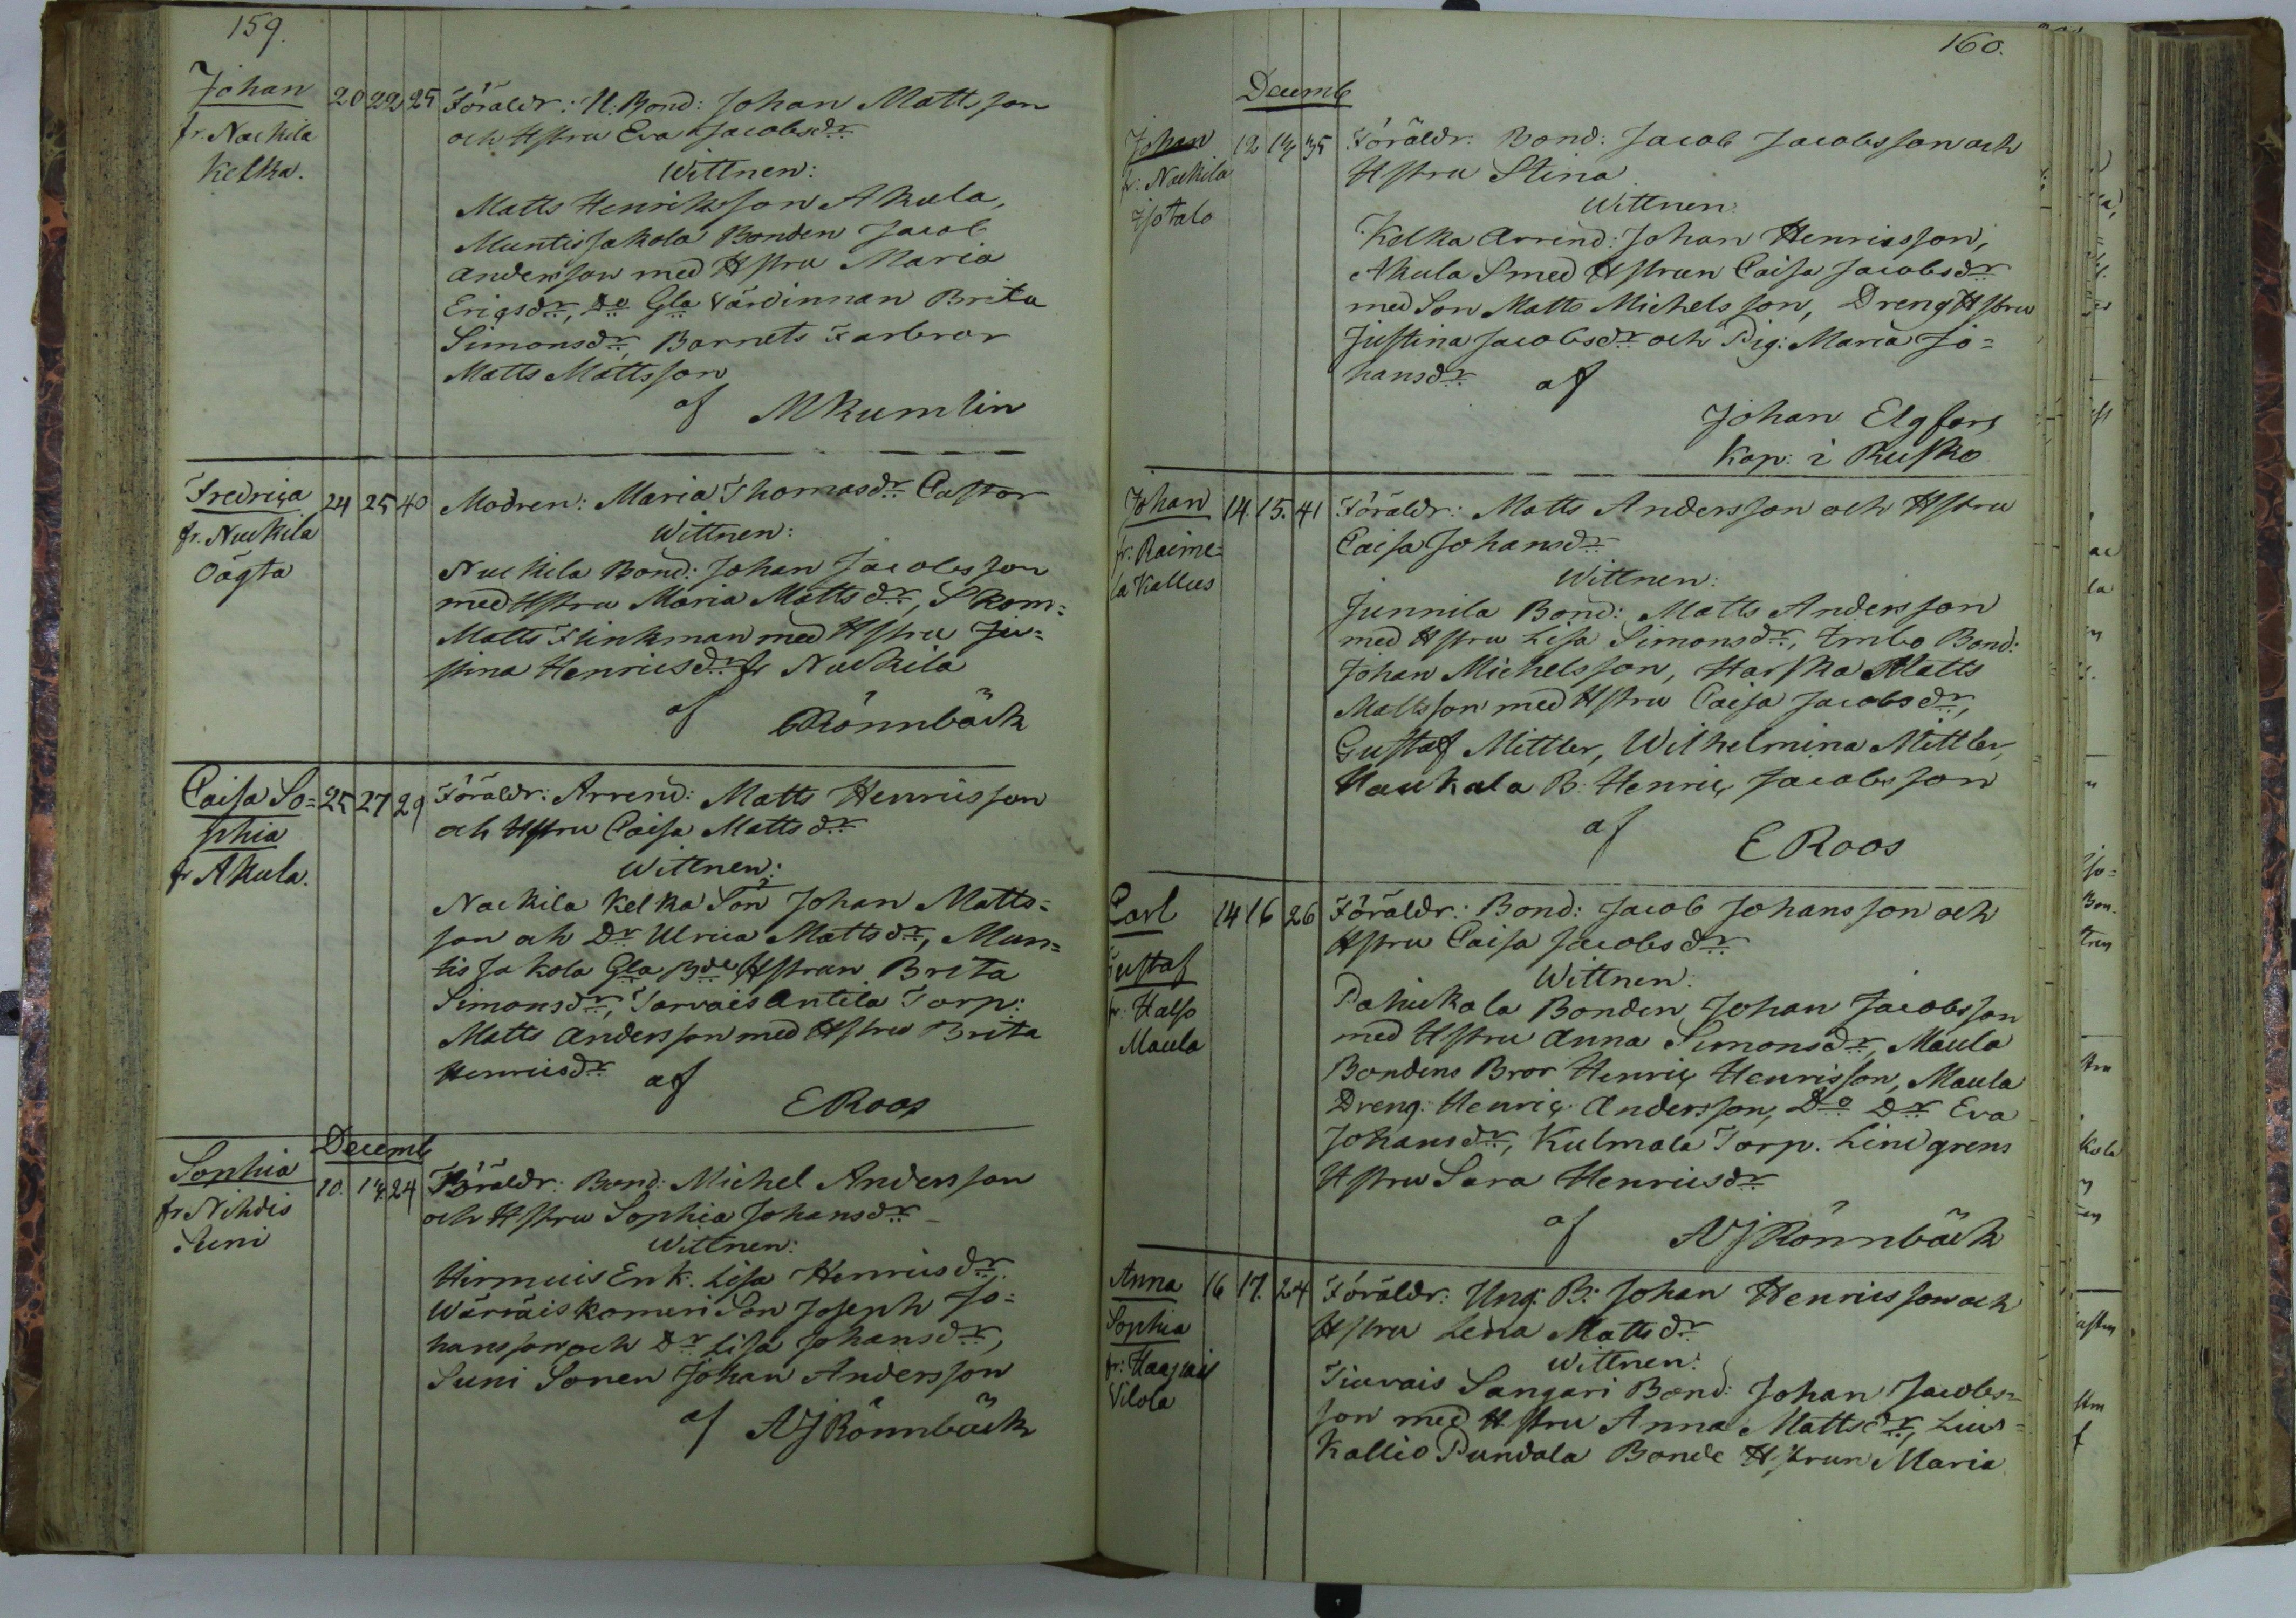 159.
Johan 20 22 25 Föräldr: U. Bond: Johan Mattsson
fr. Nackila och Hstru Eva Jacobsdr
Kelka. Wittnen:
Matts Henriksson Akula,
Muntis Jakola Bonden Jacob
Andersson med Hstru Maria
Ericsdr, Do Gla Värdinnan Brita
Simonsdr, Barnets Farbror
Matts Mattsson
af M Kumlin
Fredriça 24 25 40 Modren: Maria Thomasdr Castor
fr. Nackila Wittnen:
Öagta Nackila Bond: Johan Jacobsson
med Hstru Maria Mattsdr, Skom=
Matts Flinkman med Hstru Ju=
stina Henricsdr fr Nackila
af Rönnbäck
Caisa So= 25 27 29 Föräldr: Arrend: Matts Henricsson
phia och Hstru Caisa Mattsdr
fr Akula. Wittnen:
Nackila Kelka Son Johan Matts=
son och Dr Ulrica Mattsdr, Mun=
tis Jakola Gla Bde Hstrun Brita
Simonsdr, Tarvais Antila Torp:
Matts Andersson med Hstru Brita
Henricsdr af
E Roos
Decemb
Sophia 10. 13. 24 Föräldr: Bond: Michel Andersson
fr Nihdis och Hstru Sophia Johansdr
Suni Wittnen:
Hirmuis Enk. Lisa Henricsdr,
Wärväis Komeri Son Joseph Jo=
hansson och Dr Lisa Johansdr,
Suni Sonen Johan Andersson
af AJ Rönnbäck
160.
Decemb
Johan 12 13 35 Föräldr: Bond: Jacob Jacobsson och
fr: Nackila Hstru Stina
Isotalo Wittnen:
Kelka Arrend: Johan Henricsson,
Akula Smed Hstrun Caisa Jacobsdr
med Son Matts Michelsson, Dreng Hstru
Justina Jacobsdr och Pig: Maria Jo=
hansdr af
Johan Elgfors
Kap: i Rusko
Johan 14. 15. 41 Föräldr: Matts Andersson och Hstru
fr: Raime= Caisa Johansdr
la Kallus Wittnen:
Junnila Bond: Matts Andersson
med Hstru Lisa Simonsdr, Imbo Bond:
Johan Michelsson, Harska Matts
Mattsson med Hstru Caisa Jacobsdr,
Gustaf Mittler, Wilhelmina Mittler,
Haukala B: Henric Jacobsson
af E Roos
Carl 14 16 26 Föräldr: Bond: Jacob Johansson och
Gustaf Hstru Caisa Jacobsdr
fr: Halso Wittnen:
Maula Pahukala Bonden Johan Jacobsson
med Hstru Anna Simonsdr, Maula
Bondens Bror Henric Henricsson, Maula
Dreng: Henric Andersson, Do Dr Eva
Johansdr, Kulmala Torp. Lindgrens
Hstru Sara Henricsdr
af AJ Rönnbäck
Anna 16 17. 24 Föräldr: Ung: B: Johan Henricsson och
Sophia Hstru Lena Mattsdr
fr: Haapais Wittnen:
Vilola Tiuvais Sangari Bond: Johan Jacobs=
son med Hstru Anna Mattsdr, Lius=
Kallio Pundala Bonde Hstrun Maria